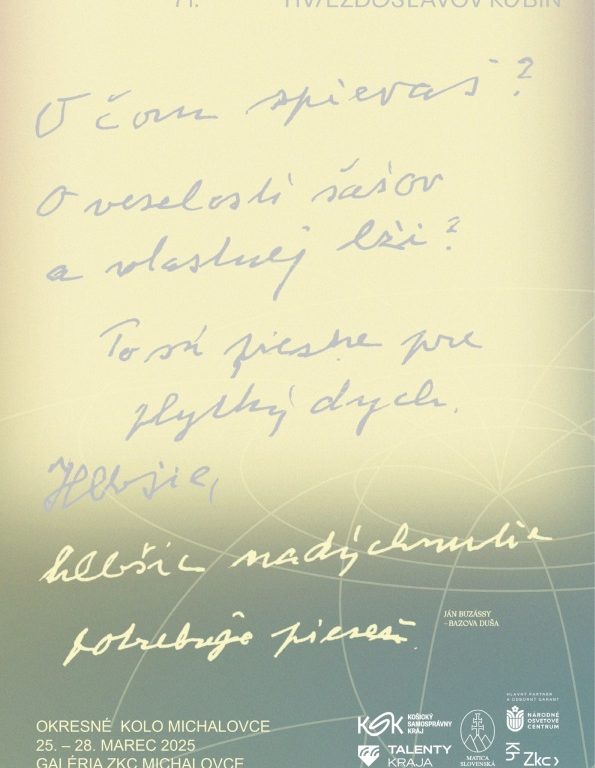 71. HVIEZDOSLAVOV KUBÍN
O čom spievaš?
O veselosti šašov
a vlastnej lži?
To sú piesne pre
plytký dych.
Hlbšie,
hlbšie nadýchnutie
potrebuje pieseň.
JÁN BUZÁSSY
–BAZOVA DUŠA
OKRESNÉ KOLO MICHALOVCE
25. – 28. MAREC 2025
GALÉRIA ZKC MICHALOVCE
KSK KOŠICKÝ
SAMOSPRÁVNY
KRAJ
TALENTY
KRAJA
MATICA
SLOVENSKÁ
HLAVNÝ PARTNER
A ODBORNÝ GARANT
NÁRODNÉ
OSVETOVÉ
CENTRUM
Zkc